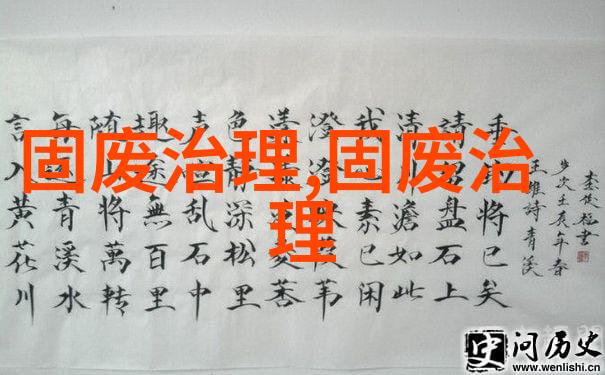 固废治理,固废治
理
言入黄花川
每逐青溪水
随山将萬转
趣途無百里
声喧乱石中
色静深松里
漾漾
澄澄映葭苇
我心素已闲
清川澹如此
请留盘石上
垂钓将已矣
王维诗青溪
岁次壬辰年春
问历史
www.wenlishi.cn